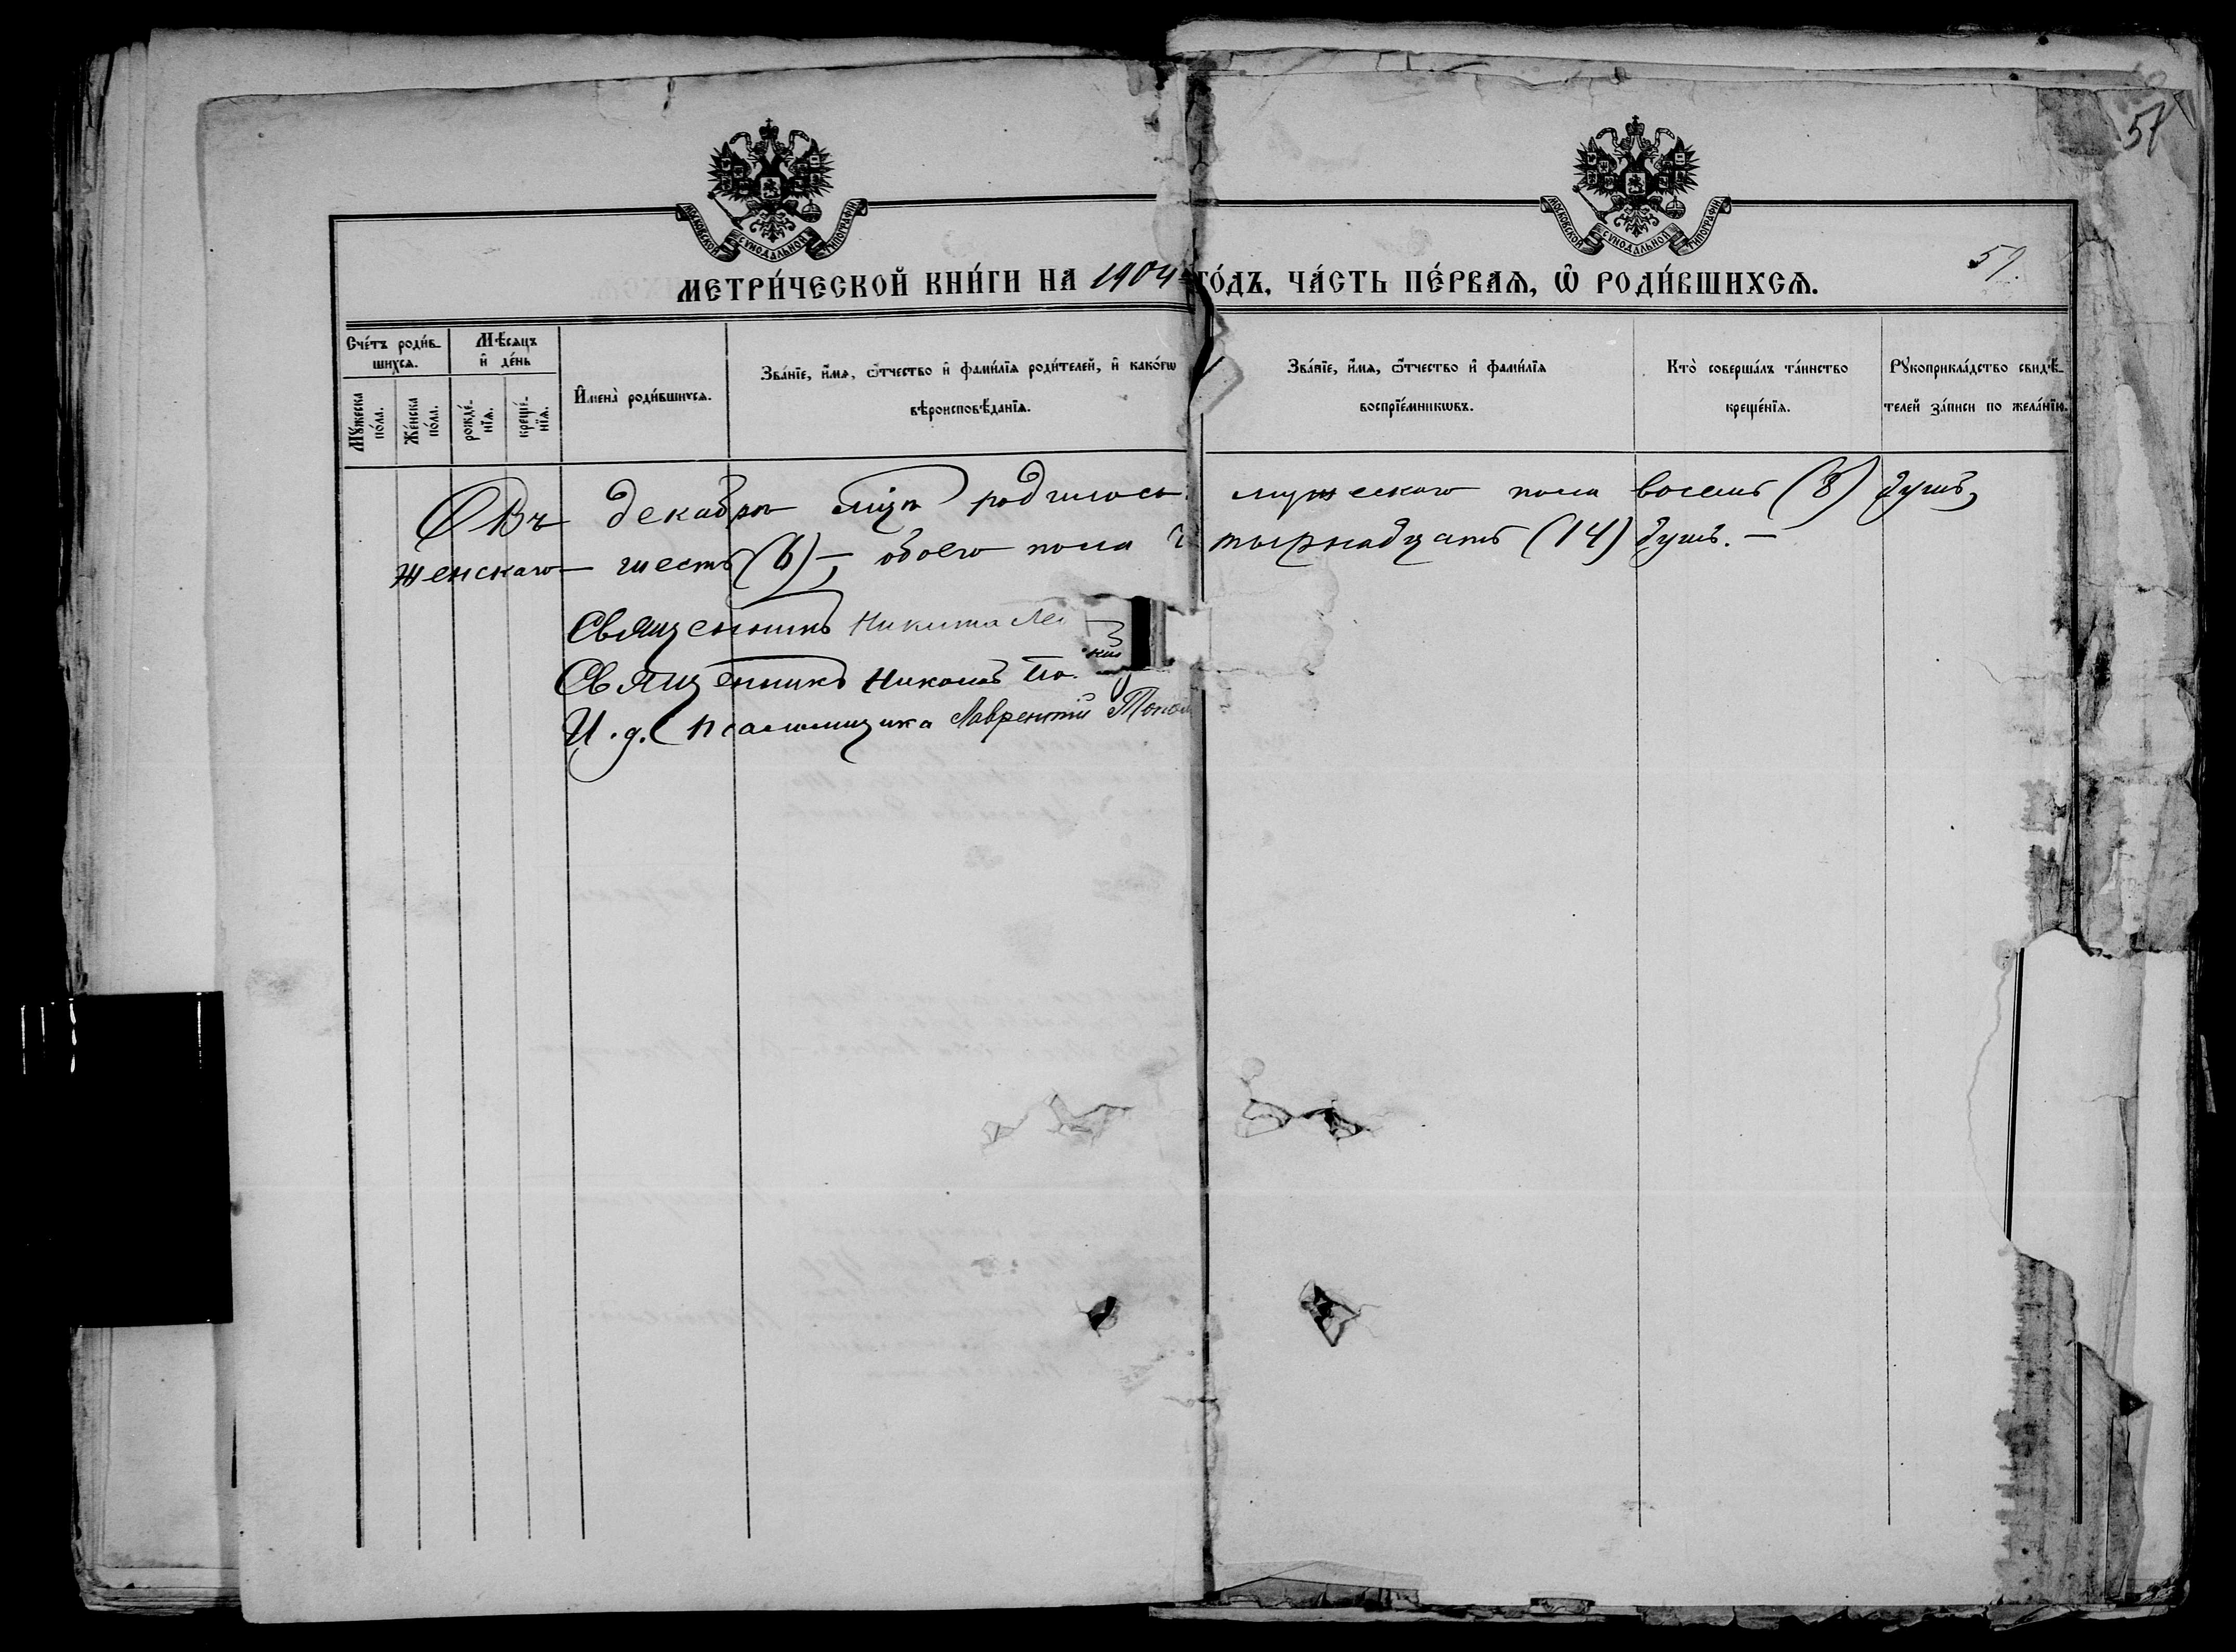 57
МОСКОВСКОЙ СѴНОДАЛЬНОЙ ТИПОГРАФІИ
МОСКОВСКОЙ СѴНОДАЛЬНОЙ ТИПОГРАФІИ
57.
МЕТРИ́ЧЕСКОЙ КНИ́ГИ НА 1904 ГО́ДЪ, ЧА́СТЬ ПЕ́РВАѦ, Ѡ҆ РОДИ́ВШИХСѦ.
Сче́тъ роди́в-
шихсѧ.
Мѣ́сѧцъ
и҆ де́нь
Мꙋ́жеска
по́ла.
Же́нска
по́ла.
рожде́-
нїѧ.
креще́-
нїѧ.
И҆мена̀ роди́вшихсѧ.
Зва́нїе, и҆́мѧ, ѻ҆́тчество и҆ фами́лїѧ роди́телей, и҆ како́гѡ
вѣроисповѣ́данїѧ.
Зва́нїе, и҆́мѧ, ѻ҆́тчество и҆ фами́лїѧ
воспрїе́мникѡвъ.
Кто̀ соверша́лъ та́инство
креще́нїѧ.
Рꙋкоприкла́дство свидѣ́-
телей за́писи по жела́нїю.
Въ декабрѣ мцѣ родилось мужескаго пола восемь (8) душъ,
женскаго — шесть (6) —, обоего пола четырнадцать (14) душъ. —
Священникъ Никита
Священникъ Николай
И. д. псаломщика Лаврентій